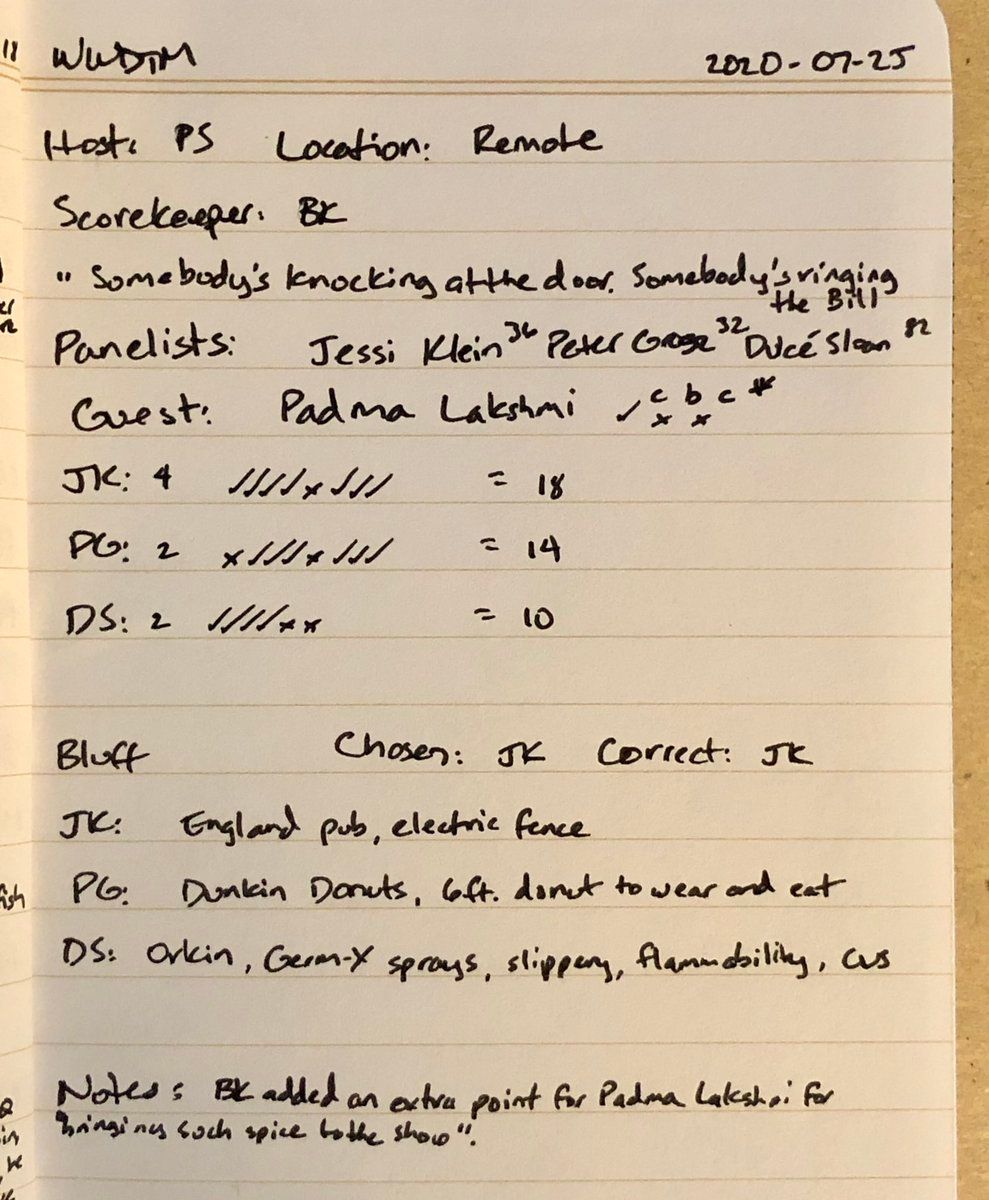 WWDTM 2020-07-25
Host: PS Location: Remote
Scorekeeper: BK
" Somebody's knocking at the door. Somebody's ringing
the Bill
Panelists: Jessi Klein 36 Peter Grosz 32 Dulcé Sloan 82
Guest: Padma Lakshmi ✓ c b c *
x x
JK: 4 ✓✓✓✓x✓✓✓ = 18
PG: 2 x✓✓✓x✓✓✓ = 14
DS: 2 ✓✓✓✓xx = 10
Bluff Chosen: JK Correct: JK
JK: England pub, electric fence
PG: Dunkin Donuts, 6ft. donut to wear and eat
DS: Orkin, Germ-X sprays, slippery, flammability, CVS
Notes: BK added an extra point for Padma Lakshmi for
"bringing such spice to the show".